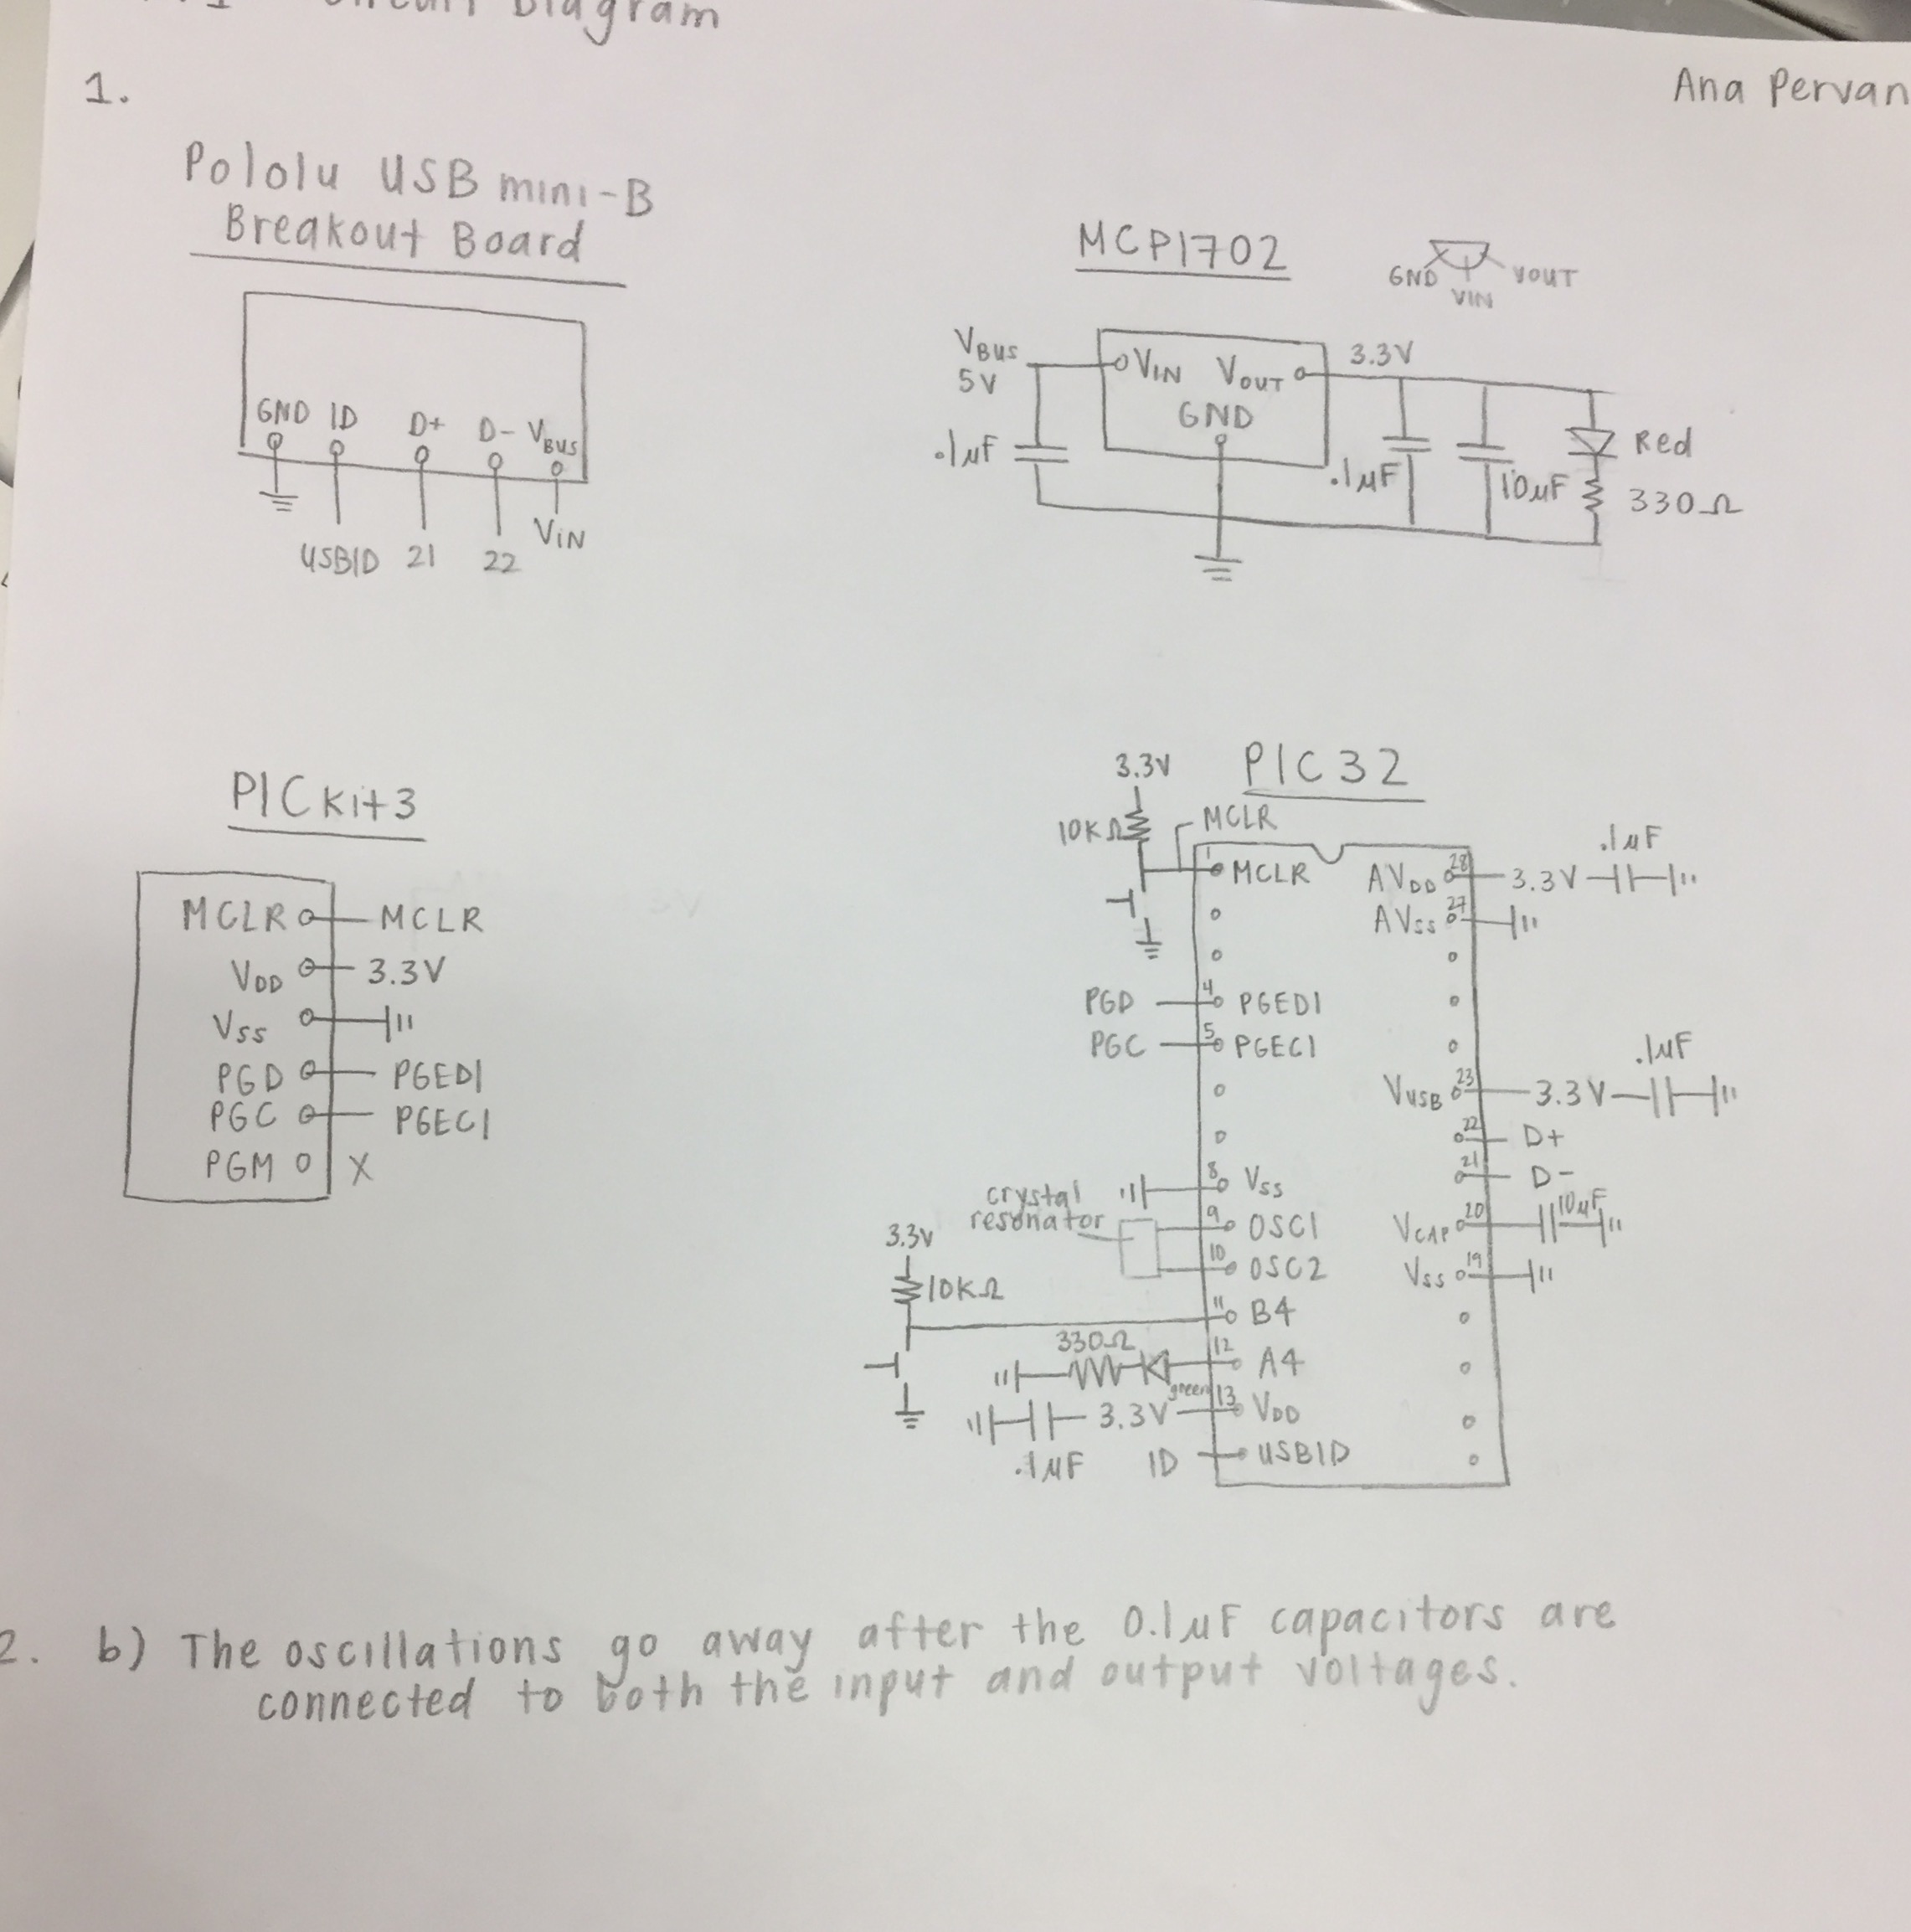 Circuit Diagram
1.
Ana Pervan
Pololu USB mini-B
Breakout Board
GND ID D+ D- VBUS
USBID 21 22 VIN
MCP1702
GND VIN VOUT
VBUS
5V
VIN VOUT
GND
3.3V
.1µF
.1µF
10µF
Red
330Ω
PICkit3
MCLR MCLR
VDD 3.3V
VSS
PGD PGED1
PGC PGEC1
PGM X
PIC32
3.3V
10KΩ
MCLR
1 MCLR
PGD 4 PGED1
PGC 5 PGEC1
8 VSS
crystal
resonator
9 OSC1
10 OSC2
3.3V
10KΩ
11 B4
330Ω
green
12 A4
3.3V 13 VDD
.1µF
ID USBID
AVDD 28 3.3V .1µF
AVSS 27
VUSB 23 3.3V .1µF
22 D+
21 D-
VCAP 20 10µF
VSS 19
2. b) The oscillations go away after the 0.1µF capacitors are
connected to both the input and output voltages.